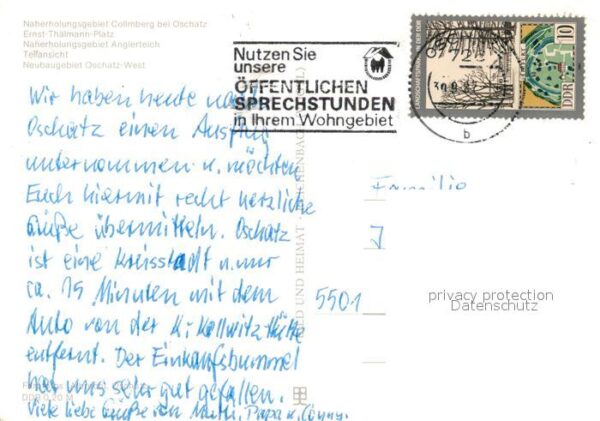 Naherholungsgebiet Collmberg bei Oschatz
Ernst-Thälmann-Platz
Naherholungsgebiet Anglerteich
Teilansicht
Neubaugebiet Oschatz-West
Nutzen Sie
unsere
ÖFFENTLICHEN
SPRECHSTUNDEN
in Ihrem Wohngebiet
b
10
DDR
Wir haben heute nach
Oschatz einen Ausflug
unternommen u. möchten
Euch hiermit recht herzliche
Grüße übermitteln. Oschatz
ist eine Kreisstadt u. nur
ca. 15 Minuten mit dem
Auto von der K. Kollwitz Hütte
entfernt. Der Einkaufsbummel
hat uns sehr gut gefallen.
Viele liebe Grüße von Mutti, Papa u. Conny.
BILD UND HEIMAT REICHENBACH
DDR 0,20 M
Familie
J
5501
privacy protection
Datenschutz